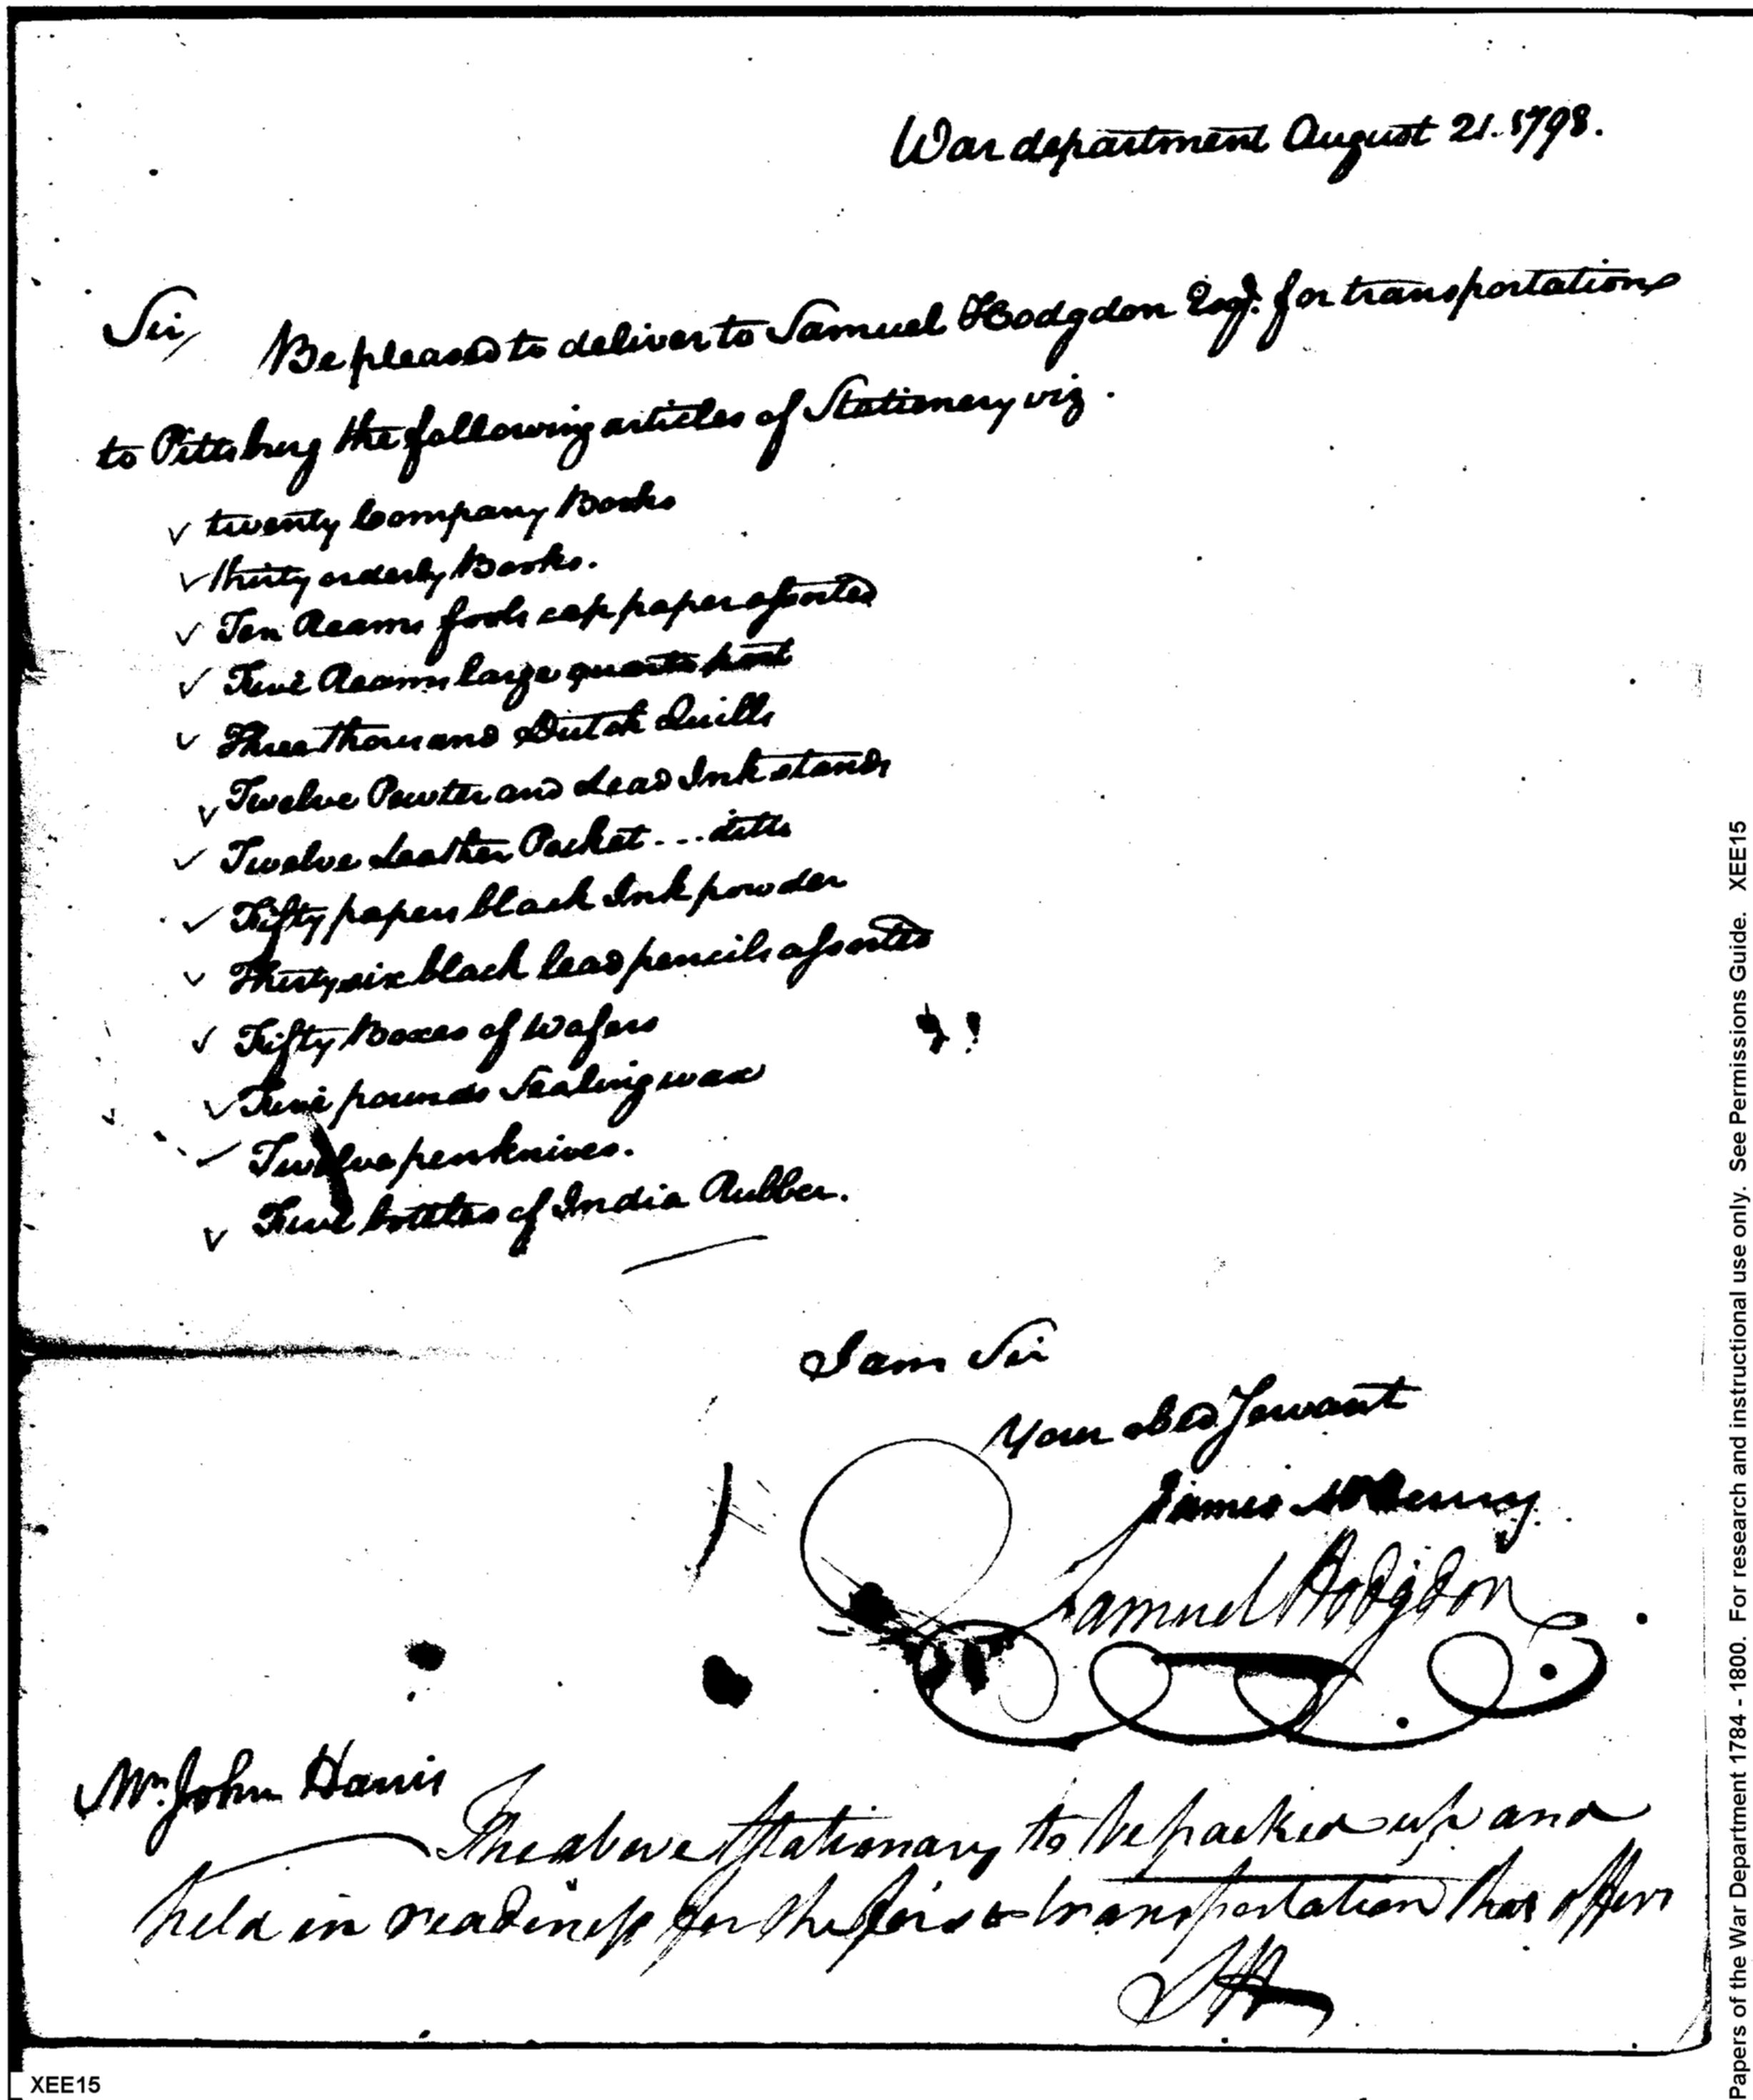 War department August 21. 1798.
Sir,
Be pleased to deliver to Samuel Hodgdon Esqr. for transportation
to Pittsburg the following articles of Stationery viz.
✓ twenty Company Books
✓ thirty orderly Books.
✓ Ten Reams fools cap paper assorted
✓ Five Reams large quarto post
✓ Three thousand Dutch Quills
✓ Twelve Pewter and Lead Ink stands
✓ Twelve Leather Pocket --- ditto
✓ Fifty papers black Ink powder
✓ Thirty six black lead pencils assorted
✓ Fifty Boxes of Wafers
✓ Five pounds Sealing wax
✓ Twelve penknives.
✓ Five bottles of India Rubber.
I am Sir
Your obed Servant
James McHenry
Samuel Hodgdon
Mr. John Harris
The above Stationary to be packed up and
held in readiness for the first transportation that offers
SH
XEE15
Papers of the War Department 1784 - 1800. For research and instructional use only. See Permissions Guide. XEE15